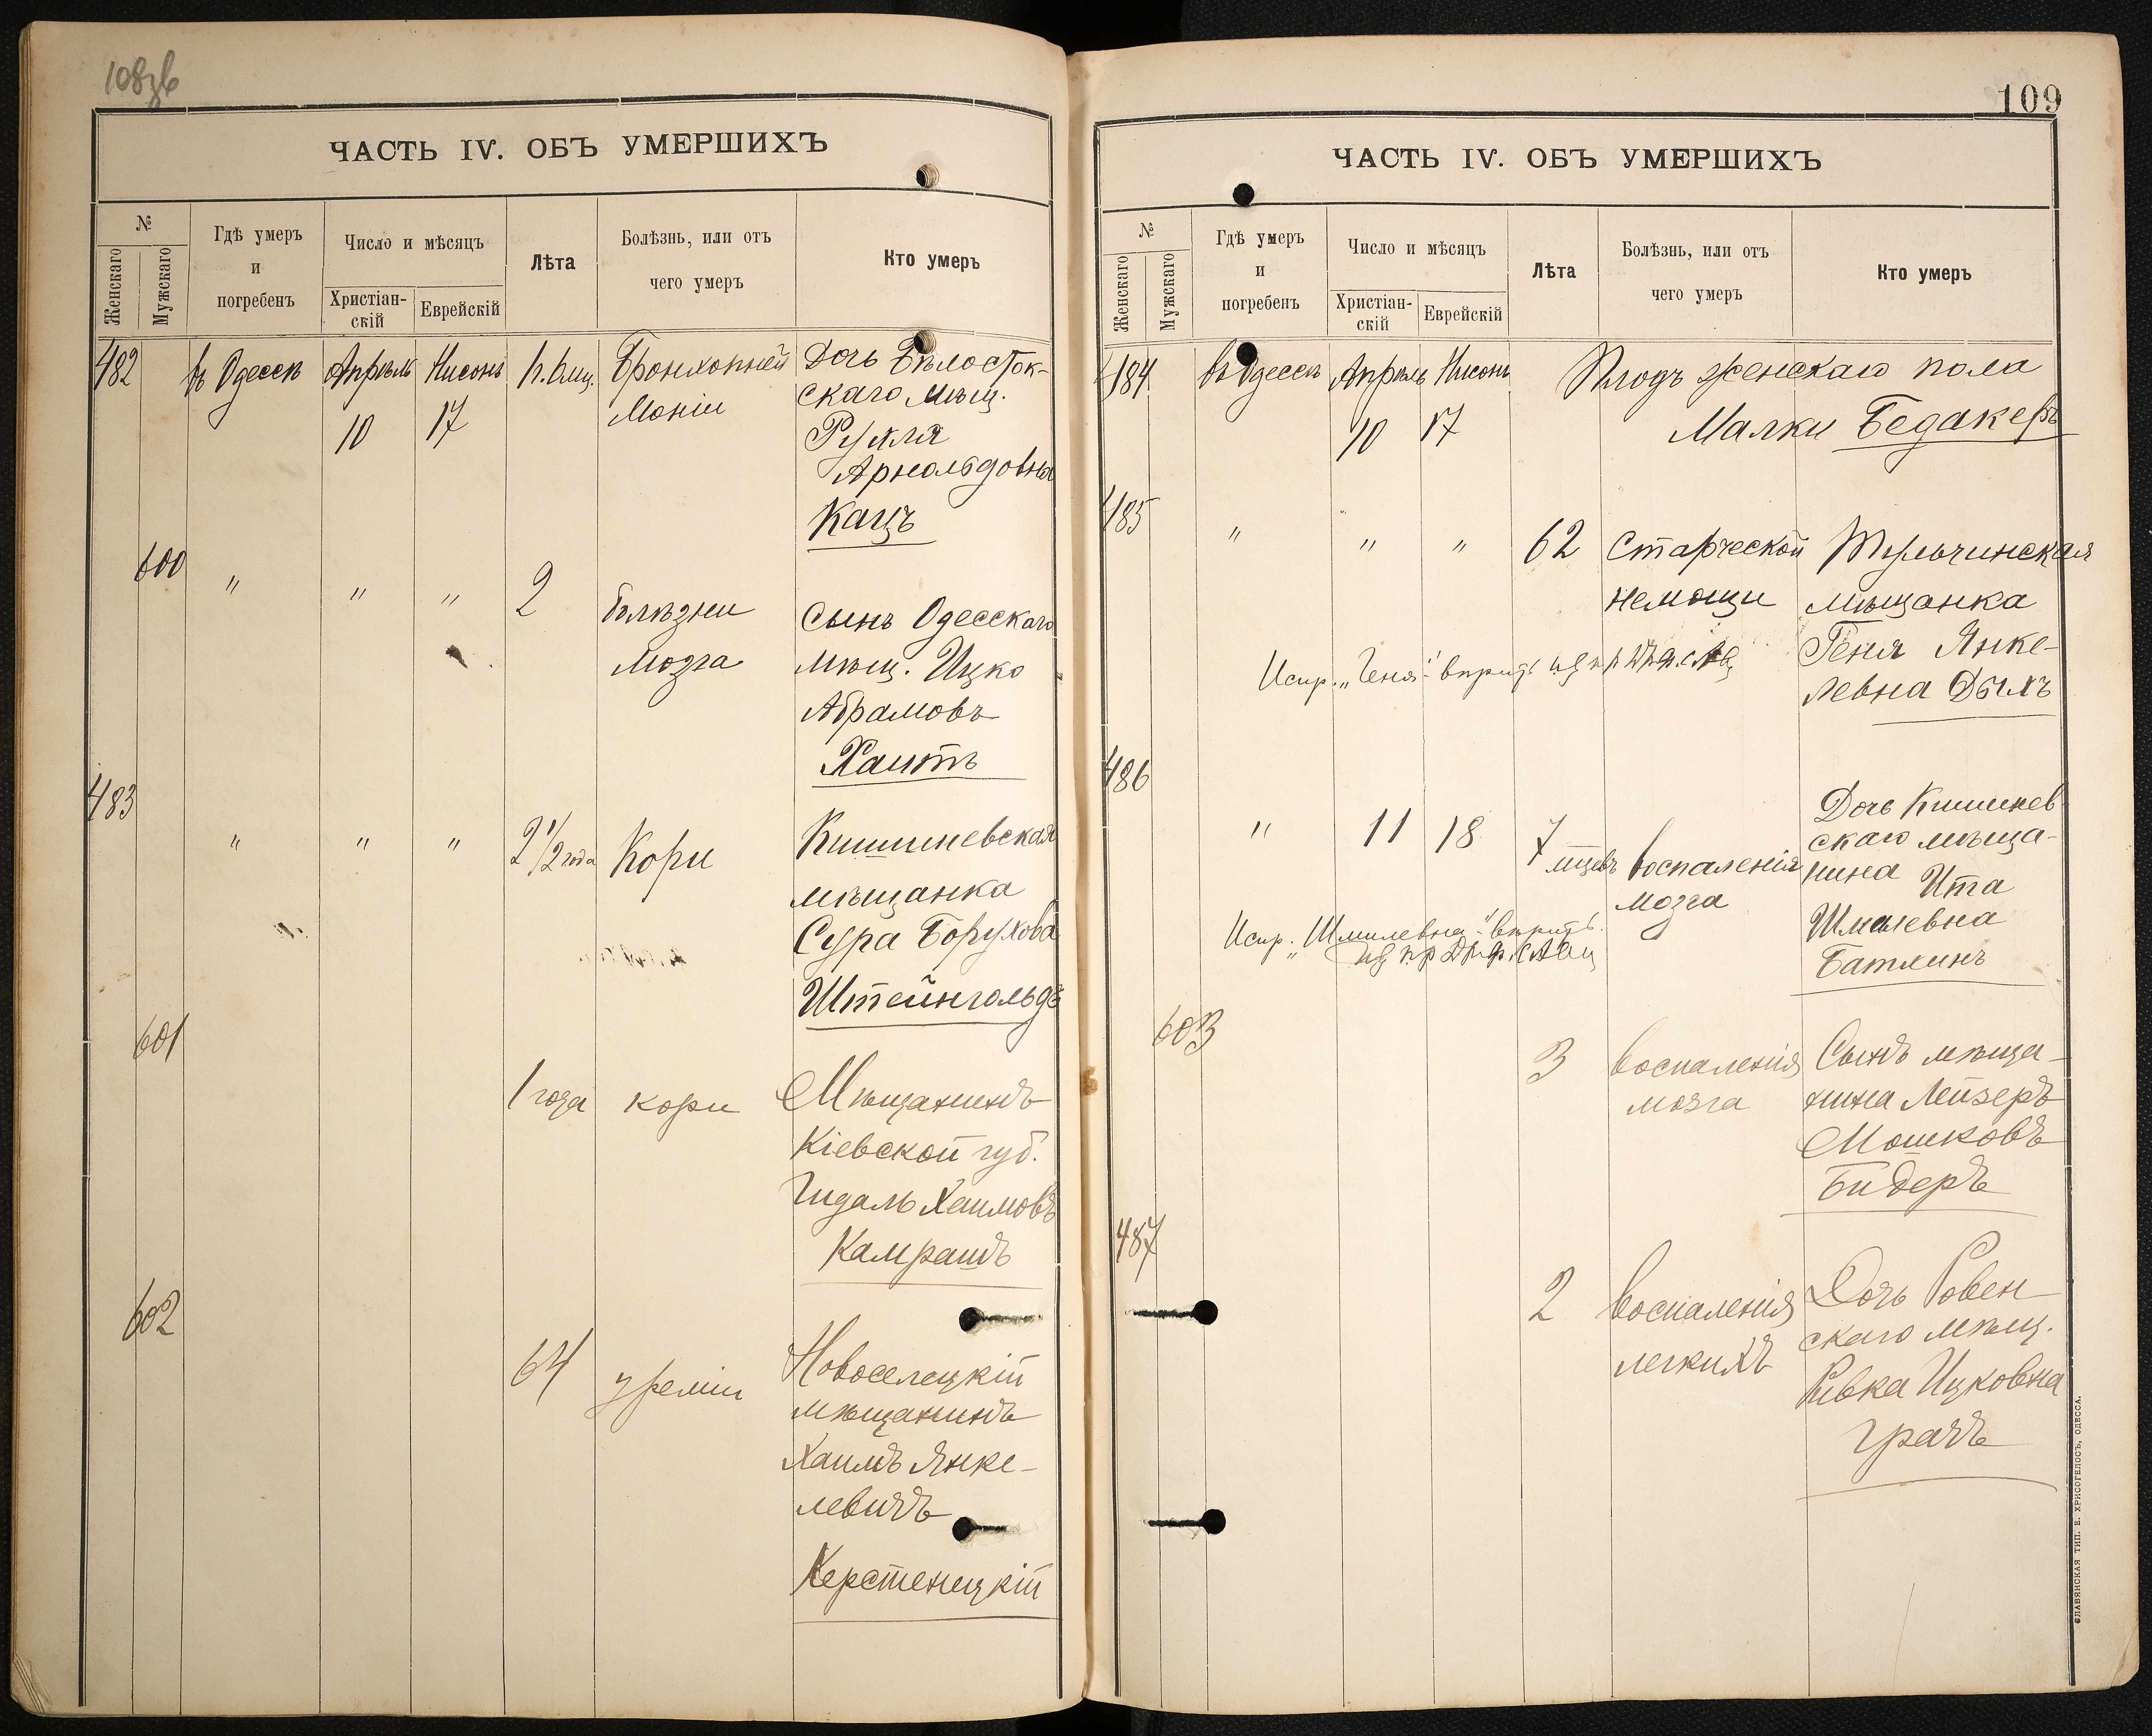 108 об
ЧАСТЬ IV. ОБЪ УМЕРШИХЪ
№
Женскаго
Мужскаго
Гдѣ умеръ
и
погребенъ
Число и мѣсяцъ
Христіан-
скій
Еврейскій
Лѣта
Болѣзнь, или отъ
чего умеръ
Кто умеръ
482 въ Одессѣ Апрѣль Нисонъ Бронхопней Дочь Бѣлосток-
10 17 Моніи скаго мѣщ.
Рухля
Арнольдовна
Кацъ
600 " " " 2 болѣзни Сынъ Одесскаго
мозга мѣщ. Ицко
Абрамовъ
Хаитъ
483 " " " 2 1/2 года Кори Кишиневская
мѣщанка
Сура Борухова
Штейнгольдъ
601 1 года кори Мѣщанинъ
Кіевской губ.
Гидаль Хаимовъ
Камрашъ
602 64 уреміи Новоселецкій
мѣщанинъ
Хаимъ Янке-
левичъ
Керстенецкій
109
ЧАСТЬ IV. ОБЪ УМЕРШИХЪ
№
Женскаго
Мужскаго
Гдѣ умеръ
и
погребенъ
Число и мѣсяцъ
Христіан-
скій
Еврейскій
Лѣта
Болѣзнь, или отъ
чего умеръ
Кто умеръ
484 въ Одессѣ Апрѣль Нисонъ Плодъ женскаго пола
10 17 Малки Бедакеръ
485 " " " 62 Старческой Тульчинская
немощи мѣщанка
Геня Янке-
Испр. „Геня"
левна Дыхъ
486 " 11 18 7 мцевъ воспаленія мозга Дочь Кишинев
скаго мѣща-
нина Ита
Шмилевна
Испр. „Шмилевна"
Батлинъ
603 3 воспаленія Сынъ мѣща-
мозга нина Лейзеръ
Мошковъ
Бидеръ
487 2 воспаленія Дочь Ровен-
легкихъ скаго мѣщ.
Ривка Ицковна
Грачъ
СЛАВЯНСКАЯ ТИП. Е. ХРИСОГЕЛОСЪ, ОДЕССА.